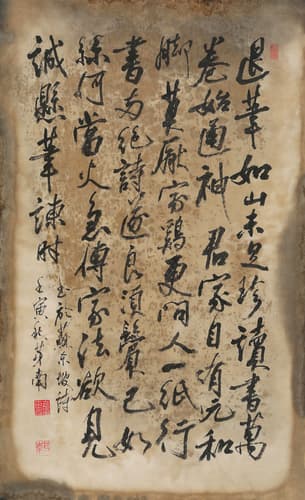 退筆如山未足珍讀書萬
卷始通神君家自有元和
脚莫厭家鷄更問人一紙行
書兩絕詩遂良須鬢已如
絲何當火急傳家法欲見
誠懸筆諫時
蘇東坡詩
壬寅